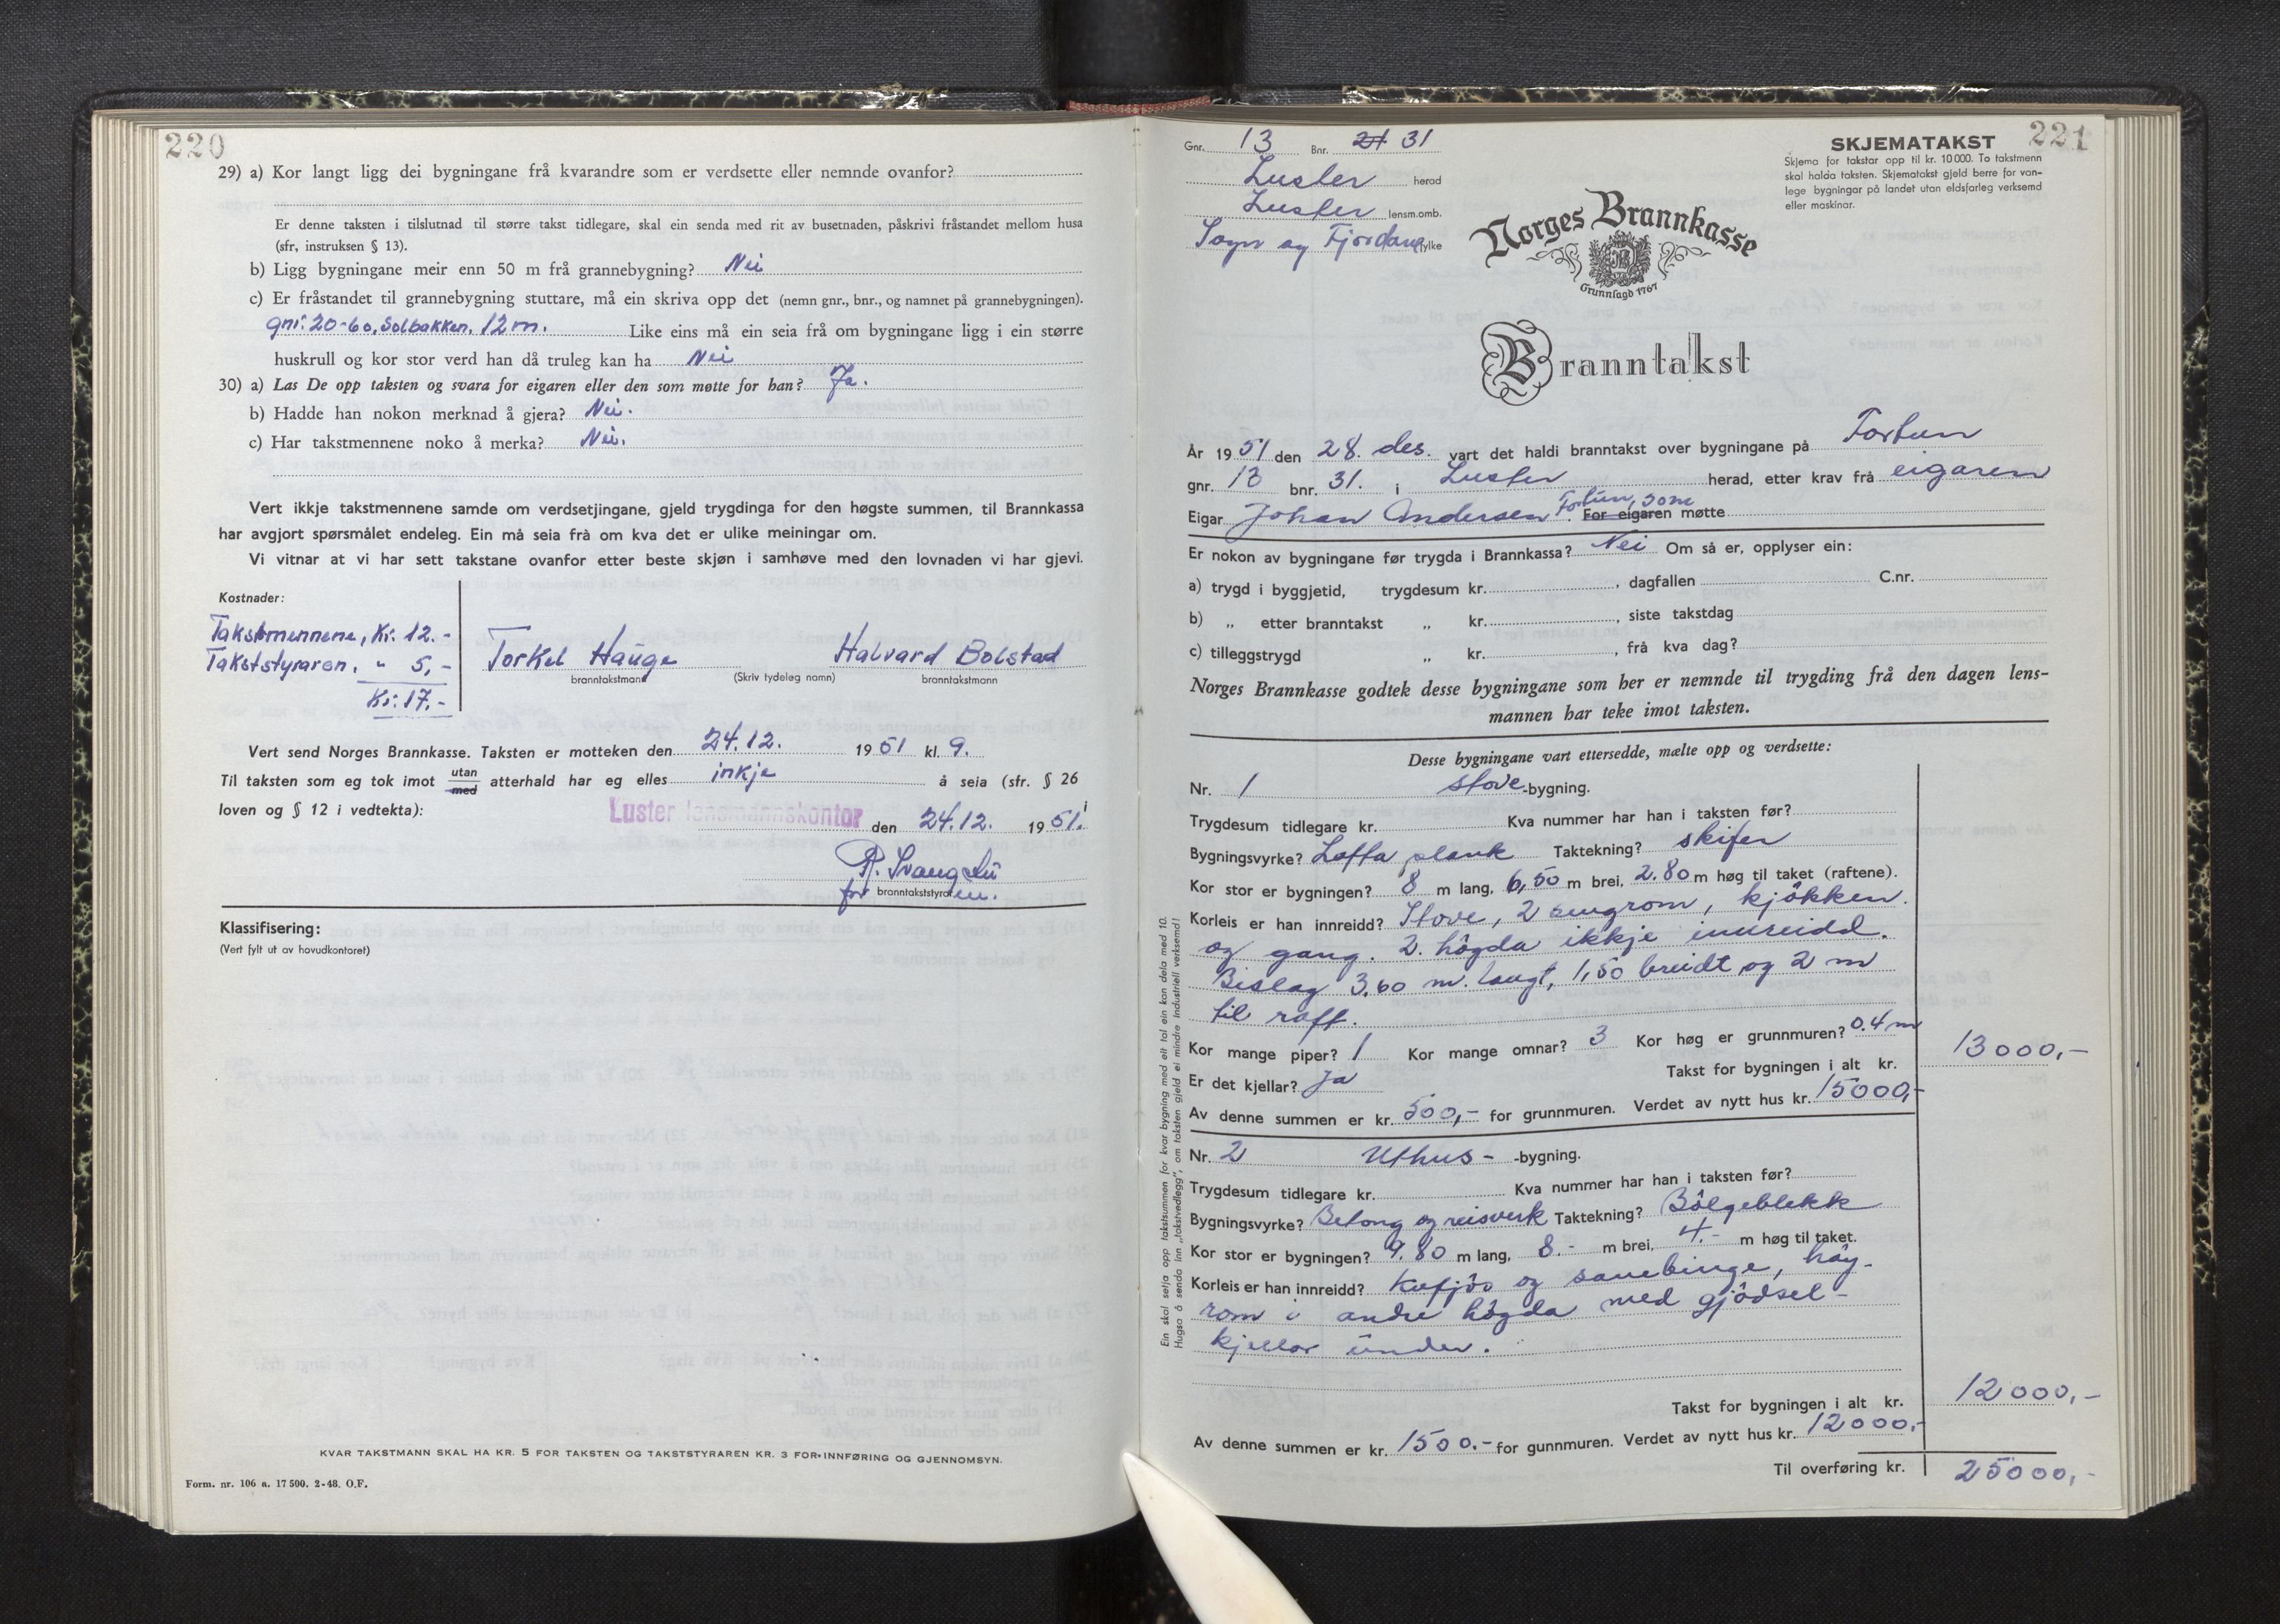 220
29) a) Kor langt ligg dei bygningane frå kvarandre som er verdsette eller nemnde ovanfor?
Er denne taksten i tilslutnad til større takst tidlegare, skal ein senda med rit av busetnaden, påskrivi fråstandet mellom husa
(sfr, instruksen § 13).
b) Ligg bygningane meir enn 50 m frå grannebygning? Nei
c) Er fråstandet til grannebygning stuttare, må ein skriva opp det (nemn gnr., bnr., og namnet på grannebygningen).
gnr. 20-60, Solbakken, 12 m. Like eins må ein seia frå om bygningane ligg i ein større
huskrull og kor stor verd han då truleg kan ha Nei
30) a) Las De opp taksten og svara for eigaren eller den som møtte for han? Ja.
b) Hadde han nokon merknad å gjera? Nei.
c) Har takstmennene noko å merka? Nei.
Vert ikkje takstmennene samde om verdsetjingane, gjeld trygdinga for den høgste summen, til Brannkassa
har avgjort spørsmålet endeleg. Ein må seia frå om kva det er ulike meiningar om.
Vi vitnar at vi har sett takstane ovanfor etter beste skjøn i samhøve med den lovnaden vi har gjevi.
Kostnader:
Takstmennene, Kr. 12.-
Takststyraren. " 5,-
Kr: 17.-
Torkel Hauge Halvard Bolstad
branntakstmann (Skriv tydeleg namn) branntakstmann
Vert send Norges Brannkasse. Taksten er motteken den 24.12. 1951 kl. 9.
Til taksten som eg tok imot utan med atterhald har eg elles inkje å seia (sfr. § 26 i
loven og § 12 i vedtekta):
Luster lensmannskontor den 24.12. 1951.
for branntakststyraren.
Klassifisering:
(Vert fylt ut av hovudkontoret)
KVAR TAKSTMANN SKAL HA KR. 5 FOR TAKSTEN OG TAKSTSTYRAREN KR. 3 FOR INNFØRING OG GJENNOMSYN.
Form. nr. 106 a. 17 500. 2-48. O.F.
221
Gnr. 13 Bnr. 21 31
Luster herad
Luster lensm.omb.
Sogn og Fjordane fylke
SKJEMATAKST
Skjema for takstar opp til kr. 10 000. To takstmenn
skal halda taksten. Skjematakst gjeld berre for van-
lege bygningar på landet utan eldsfarleg verksemd
eller maskinar.
Norges Brannkasse
Grunnlagd 1767
Branntakst
År 1951 den 28. des. vart det haldi branntakst over bygningane på Fortun
gnr. 13 bnr. 31. i Luster herad, etter krav frå eigaren
Eigar Johan Andersen Fortun, som For eigaren møtte
Er nokon av bygningane før trygda i Brannkassa? Nei Om så er, opplyser ein:
a) trygd i byggjetid, trygdesum kr. , dagfallen C.nr.
b) „ etter branntakst „ kr. , siste takstdag
c) tilleggstrygd „ kr. , frå kva dag?
Norges Brannkasse godtek desse bygningane som her er nemnde til trygding frå den dagen lens-
mannen har teke imot taksten.
Desse bygningane vart ettersedde, mælte opp og verdsette:
Nr. 1 stove-bygning.
Trygdesum tidlegare kr. Kva nummer har han i taksten før?
Bygningsvyrke? Lafta plank Taktekning? skifer
Kor stor er bygningen? 8 m lang, 6,50 m brei, 2.80 m høg til taket (raftene).
Korleis er han innreidd? Stove, 2 sengrom, kjökken
og gang. 2. högda ikkje innreidd.
Bislag 3.60 m. langt, 1,50 breidt og 2 m
til raft.
Kor mange piper? 1 Kor mange omnar? 3 Kor høg er grunnmuren? 0.4 m
Er det kjellar? Ja Takst for bygningen i alt kr. 13000,-
Av denne summen er kr. 500,- for grunnmuren. Verdet av nytt hus kr. 15000,-
Nr. 2 Uthus- -bygning.
Trygdesum tidlegare kr. Kva nummer har han i taksten før?
Bygningsvyrke? Betong og reisverk Taktekning? Bölgeblekk
Kor stor er bygningen? 9.80 m lang, 8.- m brei, 4.- m høg til taket.
Korleis er han innreidd? Kufjös og sauebinge, höy-
rom i andre högda med gjödsel-
kjellar under.
Takst for bygningen i alt kr. 12000,-
Av denne summen er kr. 1500.- for gunnmuren. Verdet av nytt hus kr. 12000,-
Til overføring kr. 25000,-
Ein skal setja opp takstsummen for kvar bygning med eit tal ein kan dela med 10.
Hugsa å senda inn „takstvedlegg", om taksten gjeld ei mindre industriell verksemd!